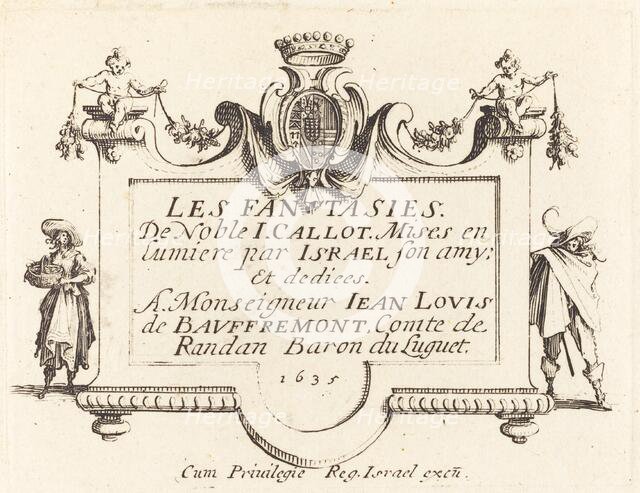 LES FANTASIES.
De Noble I. CALLOT. Mises en
lumiere par ISRAEL son amy:
Et dediees.
A. Monseigneur IEAN LOVIS
de BAVFFREMONT, Comte de
Randan Baron du Luguet.
1635
Cum Privilegie Reg. Israel excũ.
Heritage
Heritage
Heritage
Heritage
Heritage
Heritage
Heritage